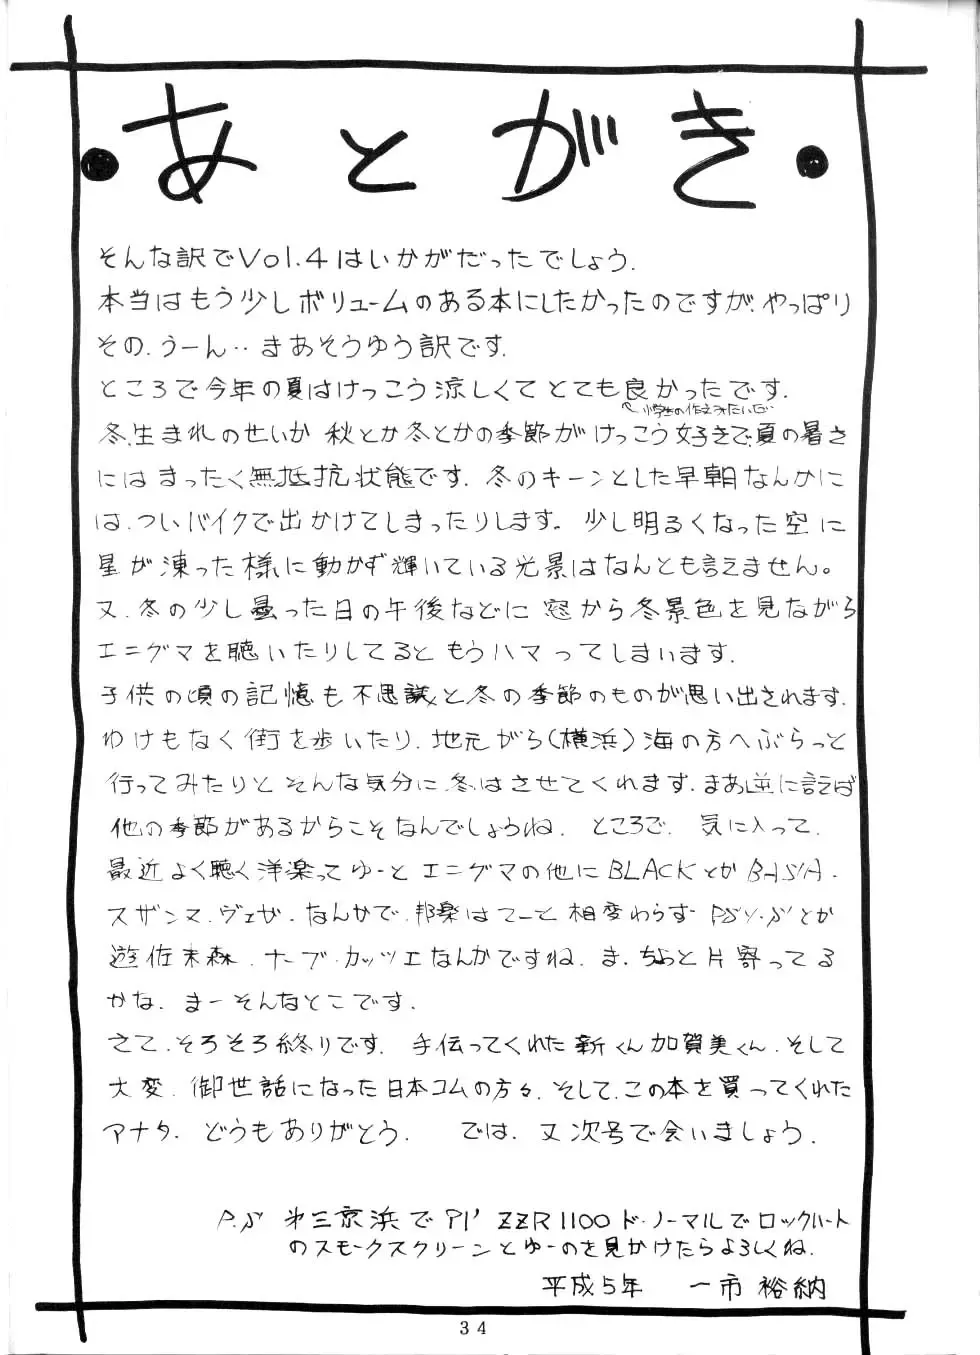 ・あとがき・
そんな訳でVol.4はいかがだったでしょう.
本当はもう少しボリュームのある本にしたかったのですが、やっぱり
その、うーん‥まあそうゆう訳です.
ところで今年の夏はけっこう涼しくてとても良かったです.
小学生の作文みたいだ…
冬生まれのせいか 秋とか冬とかの季節がけっこう好きで、夏の暑さ
にはまったく無抵抗状態です. 冬のキーンとした早朝なんかに
は、ついバイクで出かけてしまったりします。 少し明るくなった空に
星が凍った様に動かず輝いている光景はなんとも言えません。
又、冬の少し曇った日の午後などに 窓から冬景色を見ながら
エニグマを聴いたりしてると もうハマってしまいます.
子供の頃の記憶も不思議と冬の季節のものが思い出されます.
わけもなく街を歩いたり、地元がら(横浜)海の方へぶらっと
行ってみたりと そんな気分に、冬はさせてくれます. まあ逆に言えば
他の季節があるからこそなんでしょうね. ところで、気に入って、
最近よく聴く洋楽ってゆーと エニグマの他に BLACKとか BASIA、
スザンヌ、ヴェガ、なんかで、邦楽はてーと 相変わらず PSY・Sとか
遊佐未森、ナーブ・カッツェなんかですね. ま、ちょっと片寄ってる
かな、まーそんなとこです.
さて、そろそろ終りです. 手伝ってくれた新くん加賀美くん、そして
大変、御世話になった日本コムの方々、そして、この本を買ってくれた
アナタ、どうもありがとう. では、又次号で会いましょう.
P.S 第三京浜で ZZR1100 ド・ノーマルでロックハート
のスモークスクリーンとゆーのを見かけたらよろしくね.
平成5年 一市 裕納
34